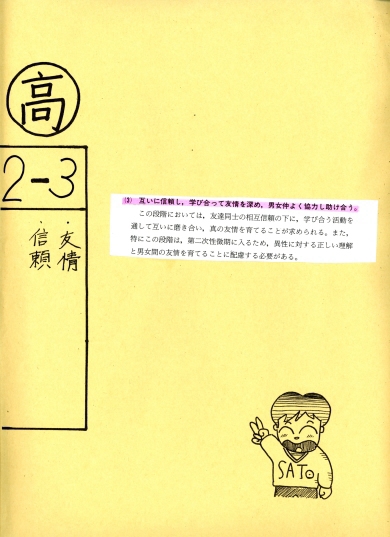 高
2-3
・友情
・信頼
(3) 互いに信頼し，学び合って友情を深め，男女仲よく協力し助け合う。
この段階においては，友達同士の相互信頼の下に，学び合う活動を
通して互いに磨き合い，真の友情を育てることが求められる。また，
特にこの段階は，第二次性徴期に入るため，異性に対する正しい理解
と男女間の友情を育てることに配慮する必要がある。
SATO